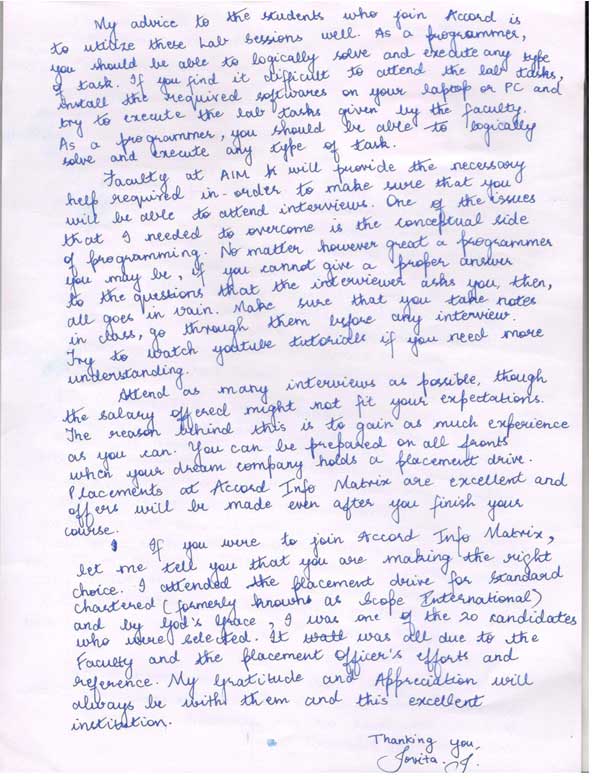 My advice to the students who join Accord is
to utilize these Lab Sessions well. As a programmer,
you should be able to logically solve and execute any type
of task. If you find it difficult to attend the lab tasks,
install the required softwares on your laptop or PC and
try to execute the lab tasks given by the faculty.
As a programmer, you should be able to logically
solve and execute any type of task.
Faculty at AIM will provide the necessary
help required in-order to make sure that you
will be able to attend interviews. One of the issues
that I needed to overcome is the conceptual side
of programming. No matter however great a programmer
you may be, if you cannot give a proper answer
to the questions that the interviewer asks you, then,
all goes in vain. Make sure that you take notes
in class, go through them before any interview.
Try to watch youtube tutorials if you need more
understanding.
Attend as many interviews as possible, though
the salary offered might not fit your expectations.
The reason behind this is to gain as much experience
as you can. You can be prepared on all fronts
when your dream company holds a placement drive.
Placements at Accord Info Matrix are excellent and
offers will be made even after you finish your
course.
If you were to join Accord Info Matrix,
let me tell you that you are making the right
choice. I attended the placement drive for Standard
Chartered (formerly known as Scope International)
and by God's Grace, I was one of the 20 candidates
who were selected. It was all due to the
Faculty and the placement Officer's efforts and
reference. My Gratitude and Appreciation will
always be with them and this excellent
institution.
Thanking you,
Jovita. J.